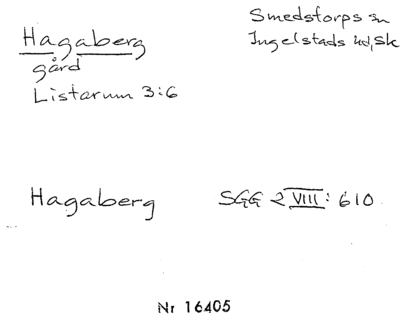 Hagaberg
gård
Listarum 3:6
Smedstorps sn
Ingelstads hd, Sk
Hagaberg SGG 2 VIII: 610
Nr 16405